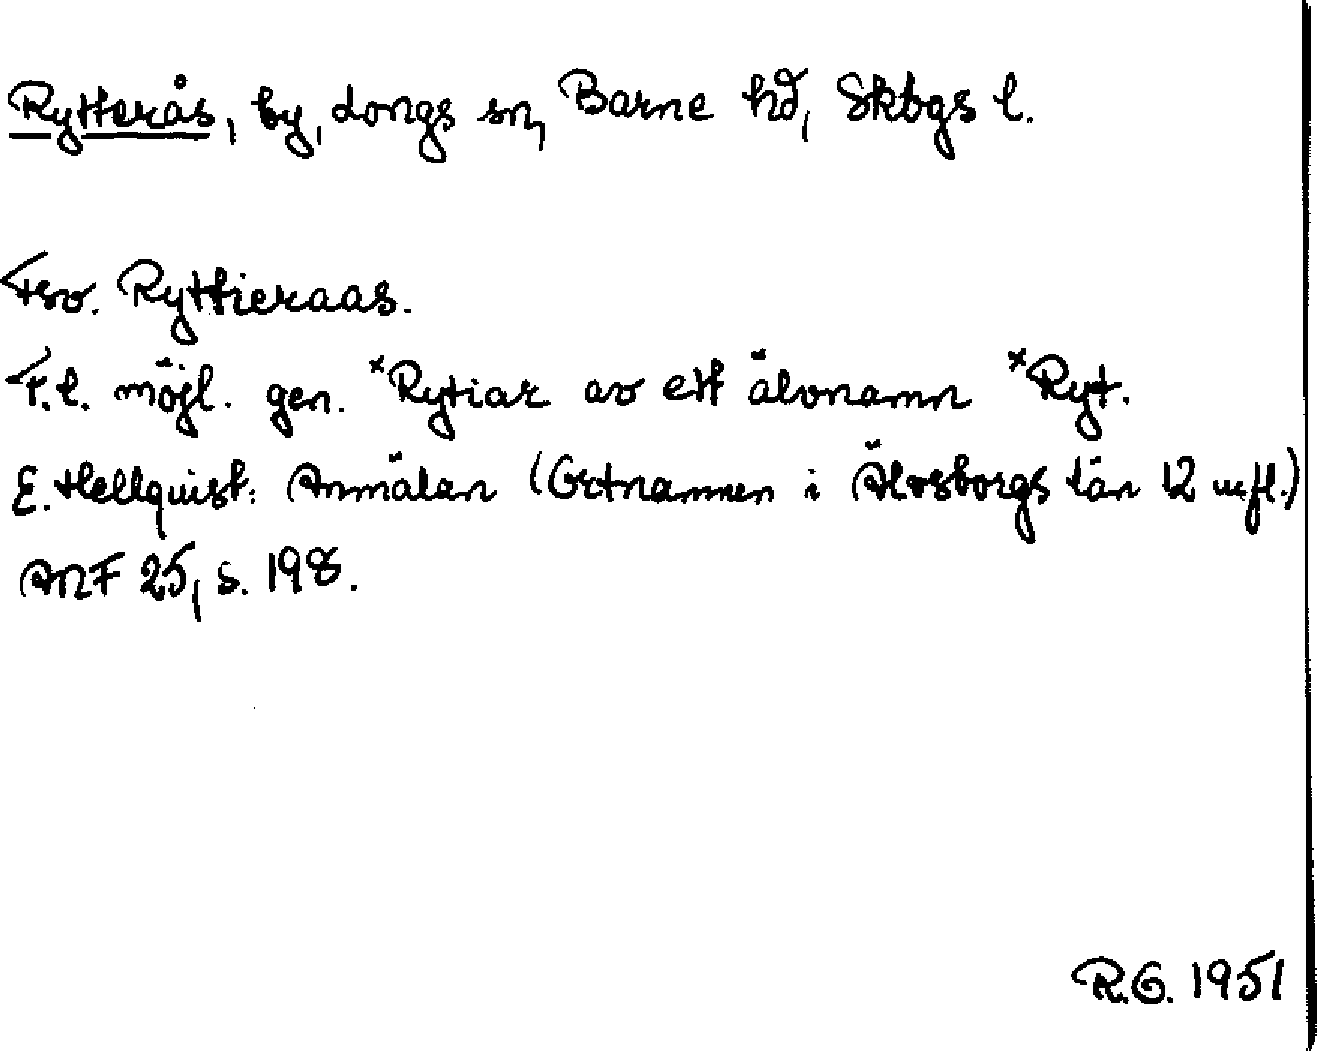 Rytterås, by, Longs sn, Barne hd, Skbgs l.
Fsv. Ryttieraas.
F.l. möjl. gen. *Rytiar av ett älvnamn *Ryt.
E. Hellquist: Anmälan (Ortnamnen i Älvsborgs län 12 m.fl.)
ANF 25, s. 198.
R.G. 1951